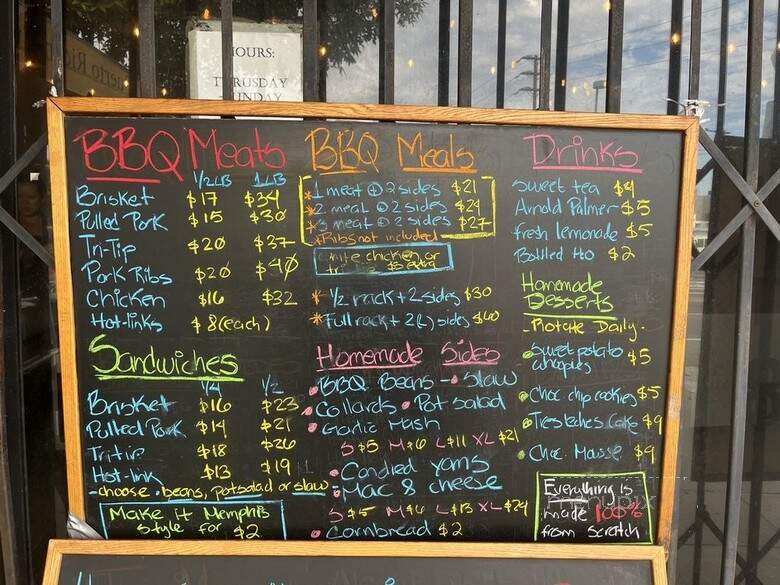 HOURS:
BBQ Meats
1/2 LB 1 LB
Brisket $17 $34
Pulled Pork $15 $30
Tri-Tip $20 $37
Pork Ribs $20 $40
Chicken $16 $32
Hot-links $8 (each)
Sandwiches
1/4 1/2
Brisket $16 $23
Pulled Pork $14 $21
Tritip $18 $26
Hot-link $13 $19
-choose . beans, potsalad or slaw
Make it Memphis
style for $2
BBQ Meals
*1 meat + 2 sides $21
*2 meat + 2 sides $24
*3 meat + 2 sides $27
*Ribs not included
chicken or
$3 extra
* 1/2 rack + 2 sides $30
* Full rack + 2(L) sides $60
Homemade Sides
BBQ Beans - Slaw
Collards Pot Salad
Garlic Mash
S $5 M $6 L $11 XL $21
Candied Yams
Mac & cheese
XL $24
Cornbread $2
Drinks
Sweet tea $4
Arnold Palmer $5
fresh lemonade $5
Bottled H2O $2
Homemade
Desserts
- Rotate Daily -
Sweet potato $5
Choc chip cookies $5
Tres leches Cake $9
Choc. Mousse $9
Everything is
made 100%
from scratch